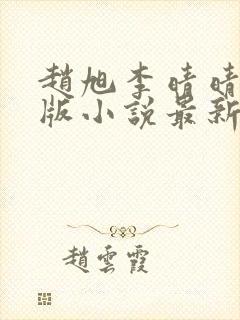 趙旭李晴晴
版小說最新
趙雲霞